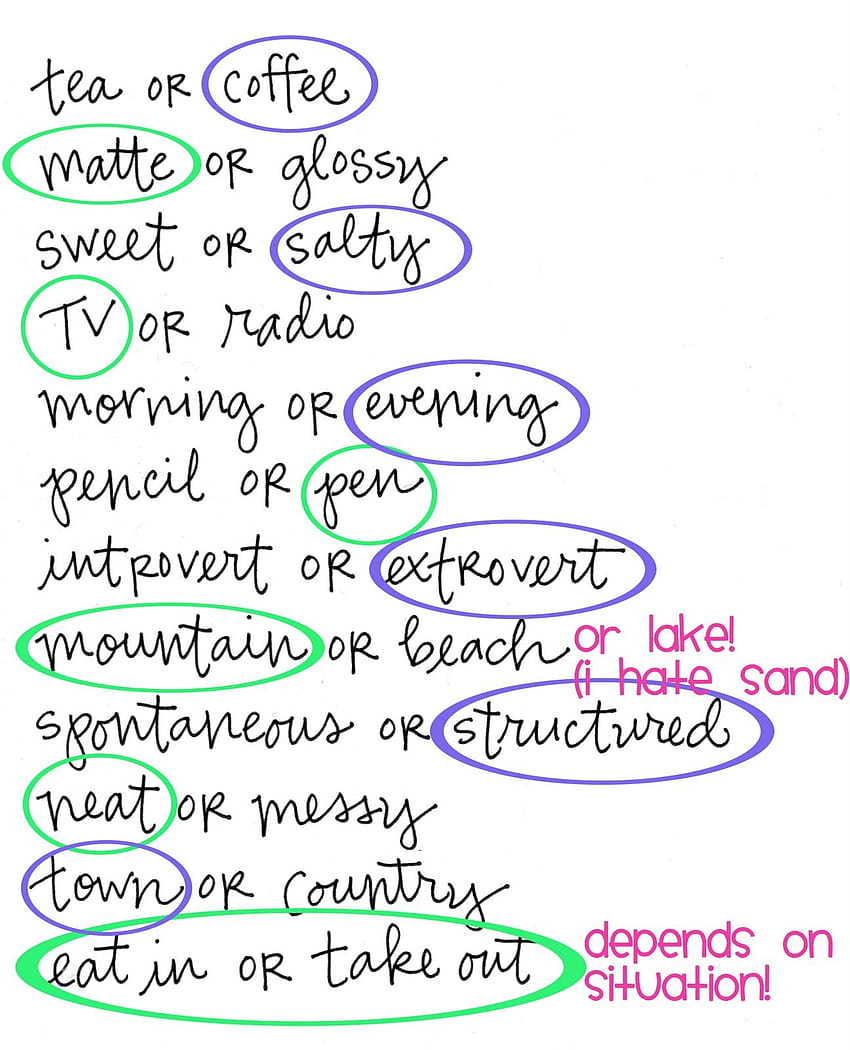 tea OR coffee
matte OR glossy
sweet OR salty
TV OR radio
morning OR evening
pencil OR pen
introvert OR extrovert
mountain OR beach or lake!
(i hate sand)
spontaneous OR structured
neat OR messy
town OR country
eat in OR take out depends on
situation!